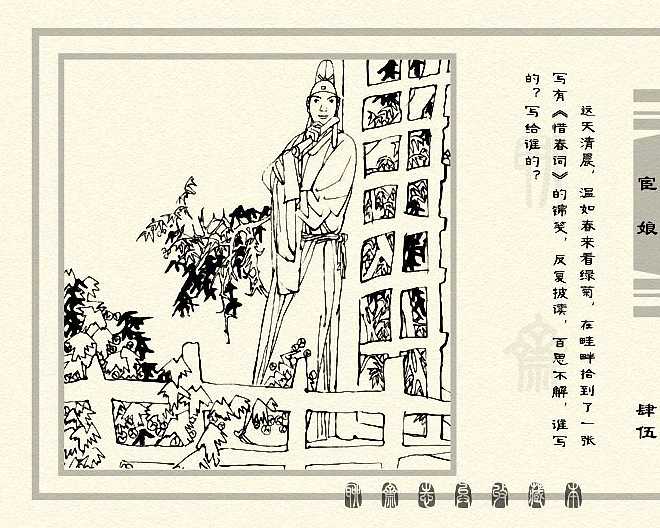 宦娘
肆伍
这天清晨，温如春来看绿菊，在畦畔拾到了一张
写有《惜春词》的锦笺，反复披读，百思不解，谁写
的？写给谁的？